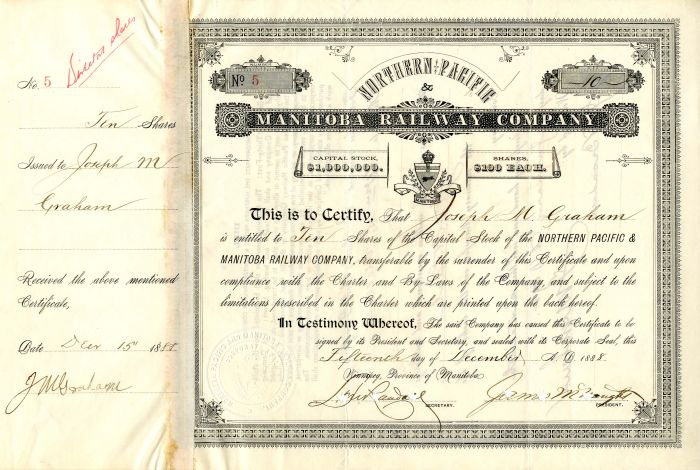 No. 5
Ten Shares
Issued to Joseph M
Graham
Received the above mentioned
Certificate,
Date Dec 15" 1888
J M Graham
No 5
10
NORTHERN PACIFIC
&
MANITOBA RAILWAY COMPANY
CAPITAL STOCK,
$1,000,000.
SHARES,
$100 EACH.
This is to Certify, That Joseph M. Graham
is entitled to Ten Shares of the Capital Stock of the NORTHERN PACIFIC &
MANITOBA RAILWAY COMPANY, transferable by the surrender of this Certificate and upon
compliance with the Charter and By-Laws of the Company, and subject to the
limitations prescribed in the Charter which are printed upon the back hereof.
In Testimony Whereof, The said Company has caused this Certificate to be
signed by its President and Secretary, and sealed with its Corporate Seal, this
Fifteenth day of December A. D. 1888.
Winnipeg, Province of Manitoba
SECRETARY.
PRESIDENT.